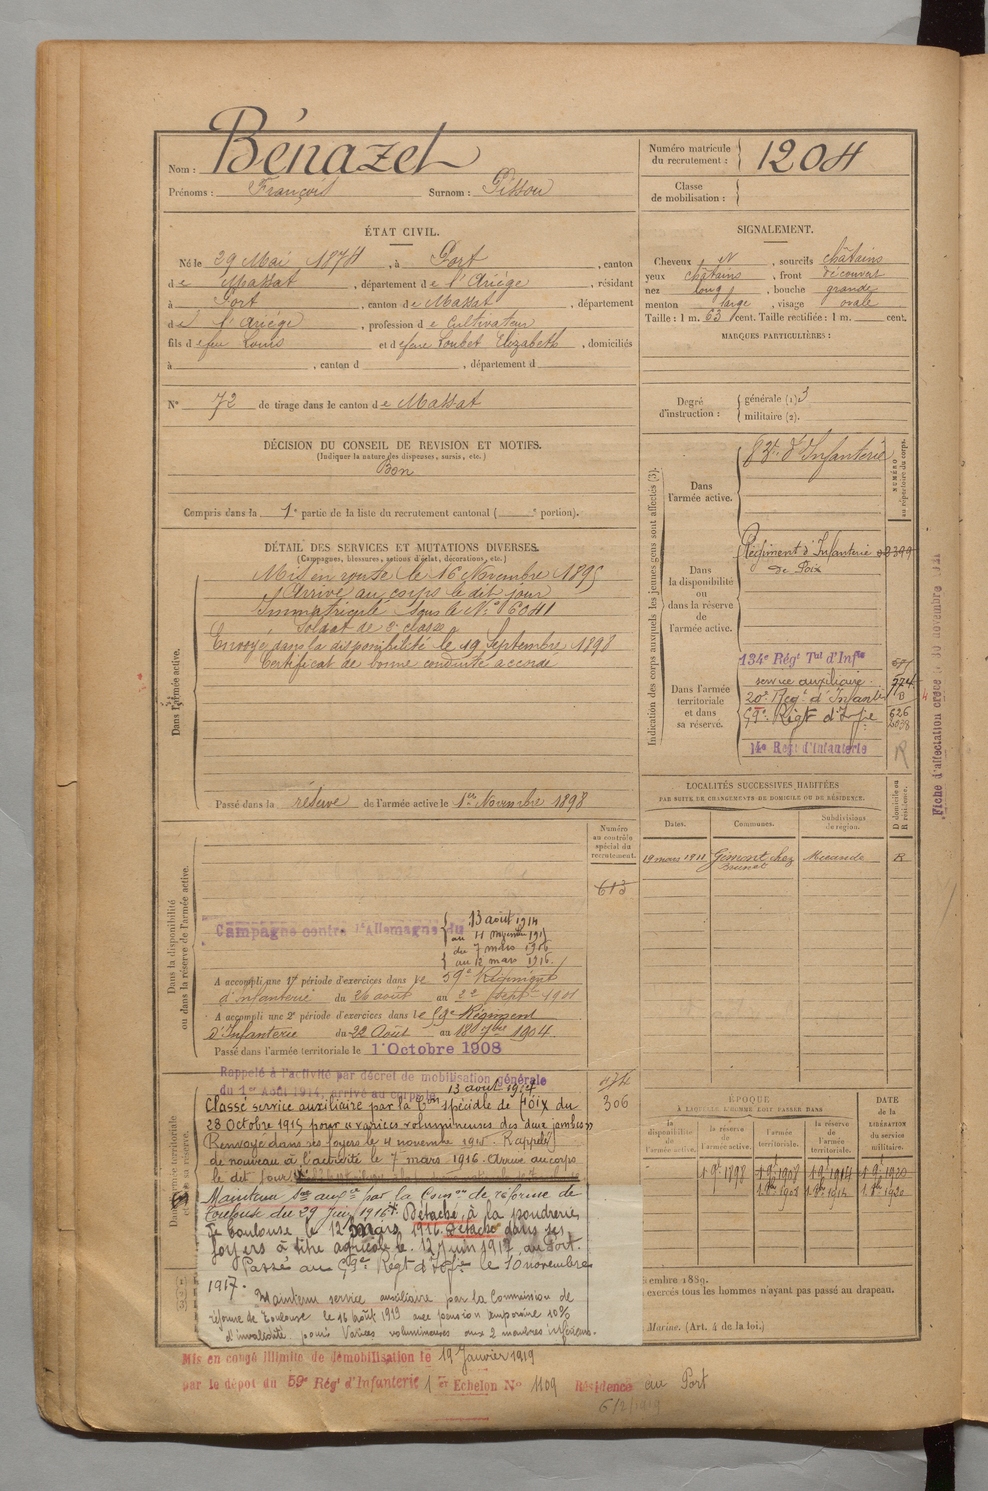 Nom : Bénazet
Prénoms : François Surnom : Pisson
Numéro matricule du recrutement : 1204
Classe de mobilisation :
ÉTAT CIVIL.
Né le 29 Mai 1874, à Port, canton
de Massat, département de l'Ariège, résidant
à Port, canton de Massat, département
de l'Ariège, profession de Cultivateur
fils de feu Louis et de feue Loubet Elizabeth, domiciliés
à , canton d , département d
N° 72 de tirage dans le canton de Massat
SIGNALEMENT.
Cheveux N, sourcils châtains
yeux châtains, front découvert
nez long, bouche grande
menton large, visage ovale
Taille : 1 m. 63 cent. Taille rectifiée : 1 m. cent.
MARQUES PARTICULIÈRES :
Degré d'instruction : générale (1) 3
militaire (2).
DÉCISION DU CONSEIL DE REVISION ET MOTIFS.
(Indiquer la nature des dispenses, sursis, etc.)
Bon
Compris dans la 1e partie de la liste du recrutement cantonal ( e portion).
DÉTAIL DES SERVICES ET MUTATIONS DIVERSES.
(Campagnes, blessures, actions d'éclat, décorations, etc.)
Dans l'armée active.
Mis en route le 16 Novembre 1895
Arrivé au corps le dit jour
Immatriculé sous le N° 6041
Soldat de 2e classe
Envoyé dans la disponibilité le 19 Septembre 1898
Certificat de bonne conduite accordé
Passé dans la réserve de l'armée active le 1er Novembre 1898
Indication des corps auxquels les jeunes gens sont affectés (3).
NUMÉRO au répertoire du corps.
Dans l'armée active.
d'Infanterie
Dans la disponibilité ou dans la réserve de l'armée active.
Régiment d'Infanterie
de Foix
Dans l'armée territoriale et dans sa réserve.
134e Régt Tal d'Infie
service auxiliaire
20e Regt d'Infanterie
59e Régt d'Infie
14e Régt d'Infanterie
R
Fiche d'affectation créée le 30 novembre
LOCALITÉS SUCCESSIVES HABITÉES
PAR SUITE DE CHANGEMENTS DE DOMICILE OU DE RÉSIDENCE.
Dates. Communes. Subdivisions de région. D domicile ou R résidence.
19 mars 1911 Gimont chez Mirande R
Numéro au contrôle spécial du recrutement.
613
Dans la disponibilité ou dans la réserve de l'armée active.
Campagne contre l'Allemagne du 13 août 1914
au 11 novembre 1915
du 7 mars 1916
au 12 mars 1916.
A accompli une 1re période d'exercices dans le 59e Régiment
d'infanterie du 26 août au 22 sept 1901
A accompli une 2e période d'exercices dans le 59e Régiment
d'Infanterie du 22 Août au 18 7bre 1904.
Passé dans l'armée territoriale le 1er Octobre 1908
Dans l'armée territoriale et dans sa réserve.
Rappelé à l'activité par décret de mobilisation générale
du 1er Août 1914, arrivé au corps le 13 août 1914
306
Classé service auxiliaire par la Con spéciale de Foix du
28 Octobre 1915 pour « varices volumineuses des deux jambes »
Renvoyé dans ses foyers le 4 novembre 1915. Rappelé
de nouveau à l'activité le 7 mars 1916. Arrivé au corps
le dit jour
Maintenu sce auxre par la Comon de réforme de
Toulouse du 29 Juin 1916. Détaché à la poudrerie
de Toulouse le 12 mars 1916. Détaché dans ses
foyers à titre agricole le 12 Juin 1917, au Port.
Passé au 59e Régt d'Infie le 10 novembre
1917.
Maintenu service auxiliaire par la Commission de
réforme de Toulouse le 16 Août 1919 avec pension temporaire 10%
d'invalidité pour Varices volumineuses aux 2 membres inférieurs.
ÉPOQUE
À LAQUELLE L'HOMME DOIT PASSER DANS
la disponibilité de l'armée active. la réserve de l'armée active. l'armée territoriale. la réserve de l'armée territoriale.
DATE de la LIBÉRATION du service militaire.
1 9e 1898 1 9e 1908 1 9e 1914 1 9e 1920
embre 1889.
exercés tous les hommes n'ayant pas passé au drapeau.
Marine. (Art. 4 de la loi.)
Mis en congé illimité de démobilisation le 19 Janvier 1919
par le dépôt du 59e Régt d'Infanterie 1er Echelon N° 1109 Résidence au Port
6/2/1919